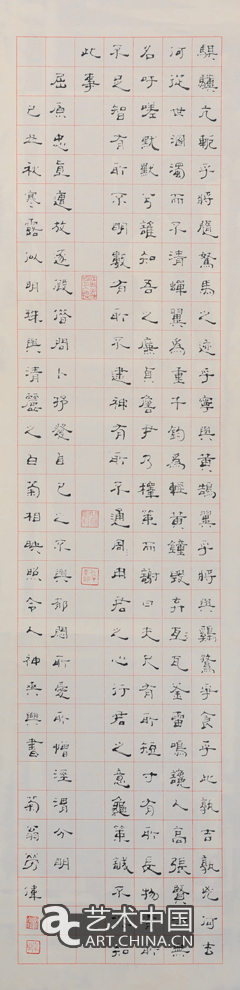 騏驥亢軛乎將隨駑馬之迹乎寧與黃鵠翼乎將與鷄鶩爭食乎此孰吉孰兇何去
何從世溷濁而不清蟬翼為重千鈞為輕黃鐘毀弃瓦釜雷鳴讒人高張賢無
名吁嗟默默兮誰知吾之廉貞詹尹乃釋策而謝曰夫尺有所短寸有所長物
不足智有所不明數有所不逮神有所不通用君之心行君之意龜策誠不知
此事
屈原忠貞遭放逐假借問卜抒發自己之不與邪所愛所憎涇渭分明
己丑秋寒露以明珠與清麗之白菊相映照令人神爽興書 菊翁
艺术中国
ART.CHINA.CN